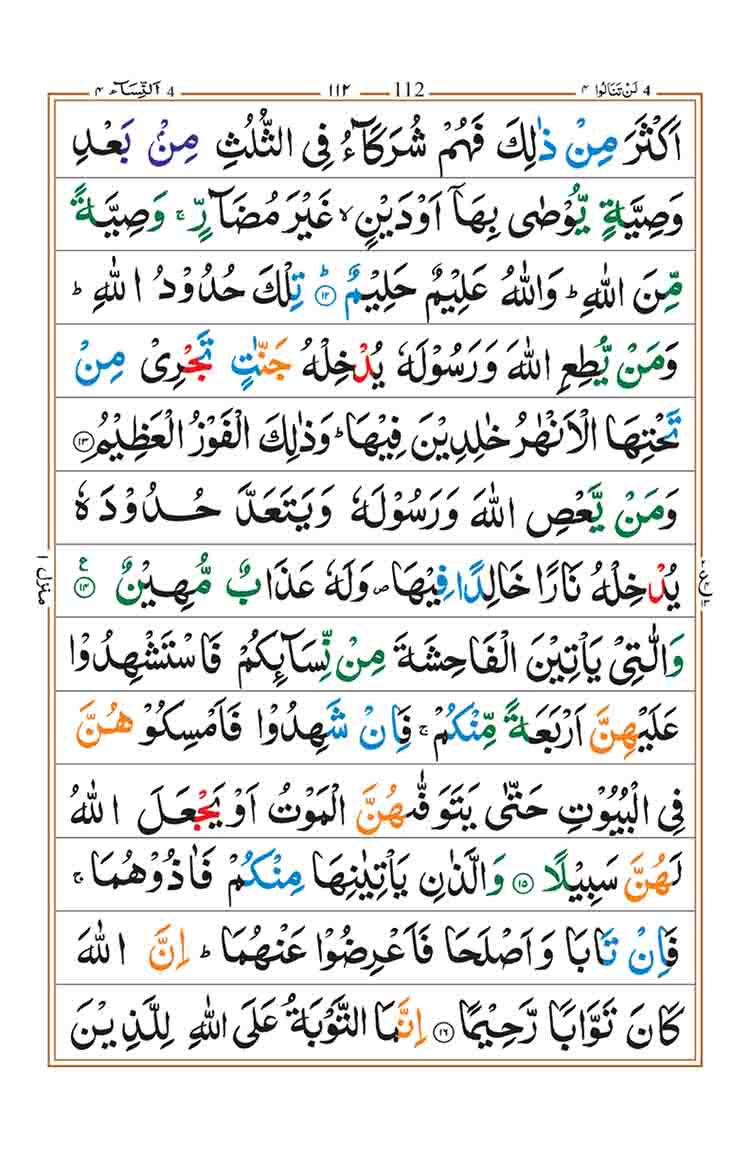 4 لَنْ تَنَالُوا ۴ 112 ١١٢ 4 اَلنِّسَآء ۴
اَكْثَرَ مِنْ ذٰلِكَ فَهُمْ شُرَكَآءُ فِى الثُّلُثِ مِنْۢ بَعْدِ
وَصِيَّةٍ يُّوْصٰى بِهَاۤ اَوْدَيْنٍ ۙ غَيْرَ مُضَآرٍّ ۚ وَصِيَّةً
مِّنَ اللّٰهِ ؕ وَاللّٰهُ عَلِيْمٌ حَلِيْمٌ ؕ ﴿۱۲﴾ تِلْكَ حُدُوْدُ اللّٰهِ ؕ
وَمَنْ يُّطِعِ اللّٰهَ وَرَسُوْلَهٗ يُدْخِلْهُ جَنّٰتٍ تَجْرِىْ مِنْ
تَحْتِهَا الْاَنْهٰرُ خٰلِدِيْنَ فِيْهَا ؕ وَذٰلِكَ الْفَوْزُ الْعَظِيْمُ ﴿۱۳﴾
وَمَنْ يَّعْصِ اللّٰهَ وَرَسُوْلَهٗ وَيَتَعَدَّ حُدُوْدَهٗ
يُدْخِلْهُ نَارًا خَالِدًا فِيْهَا ۪ وَلَهٗ عَذَابٌ مُّهِيْنٌ ﴿۱۴﴾ ع
وَالّٰتِىْ يَاْتِيْنَ الْفَاحِشَةَ مِنْ نِّسَآئِكُمْ فَاسْتَشْهِدُوْا
عَلَيْهِنَّ اَرْبَعَةً مِّنْكُمْ ۚ فَاِنْ شَهِدُوْا فَاَمْسِكُوْ هُنَّ
فِى الْبُيُوْتِ حَتّٰى يَتَوَفّٰٮهُنَّ الْمَوْتُ اَوْ يَجْعَلَ اللّٰهُ
لَهُنَّ سَبِيْلًا ﴿۱۵﴾ وَالَّذٰنِ يَاْتِيٰنِهَا مِنْكُمْ فَاٰذُوْهُمَا ۚ
فَاِنْ تَابَا وَاَصْلَحَا فَاَعْرِضُوْا عَنْهُمَا ؕ اِنَّ اللّٰهَ
كَانَ تَوَّابًا رَّحِيْمًا ﴿۱۶﴾ اِنَّمَا التَّوْبَةُ عَلَى اللّٰهِ لِلَّذِيْنَ
منزل ١